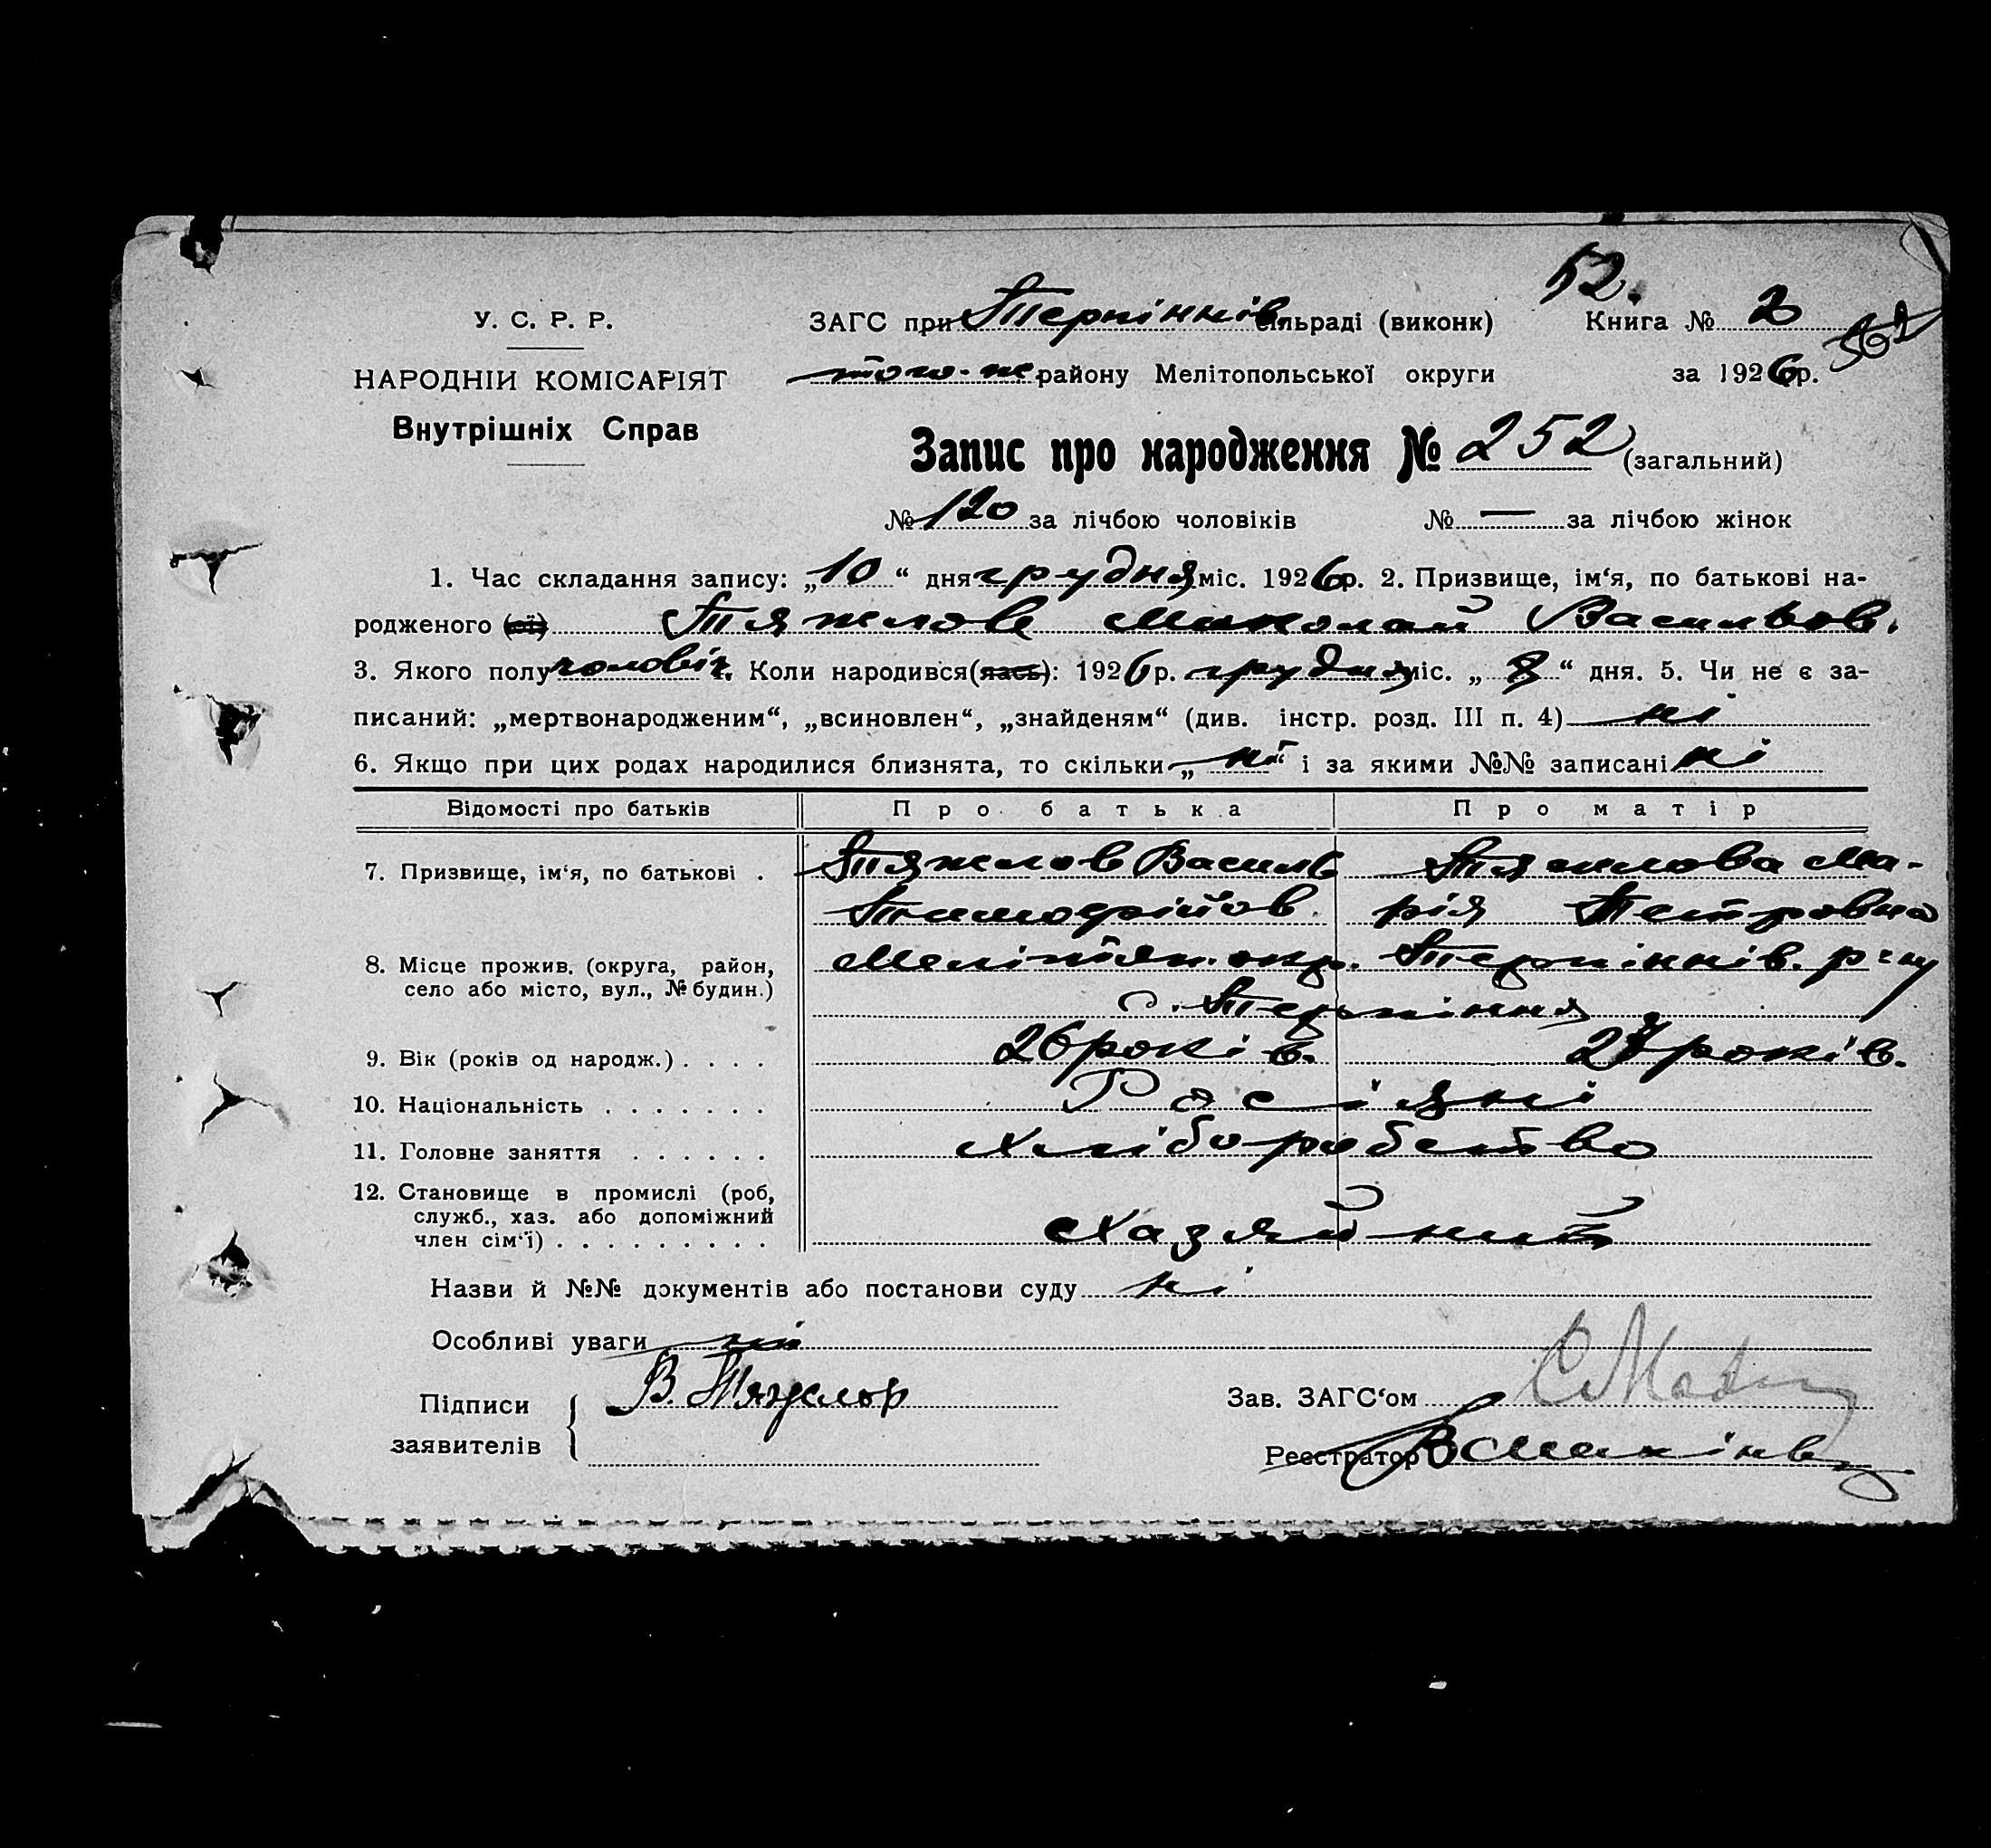 52.
У. С. Р. Р.
ЗАГС при Терпіннів. сільраді (виконк) Книга № 2
562
НАРОДНІИ КОМІСАРІЯТ
того-же району Мелітопольської округи за 1926 р.
Внутрішніх Справ
Запис про народження № 252 (загальний)
№ 120 за лічбою чоловіків № — за лічбою жінок
1. Час складання запису: „10“ дня грудня міс. 1926 р. 2. Призвище, ім‘я, по батькові на-
родженого (ої) Тяжлов Миколай Васильов.
3. Якого полу чоловіч. Коли народився(лась): 1926 р. грудня міс. „8“ дня. 5. Чи не є за-
писаний: „мертвонародженим“, „всиновлен“, „знайденям“ (див. інстр. розд. III п. 4) ні
6. Якщо при цих родах народилися близнята, то скільки „ні“ і за якими №№ записані ні
Відомості про батьків Про батька Про матір
7. Призвище, ім‘я, по батькові . Тяжлов Василь Тяжлова Ма-
Тимофійов. рія Петровна
8. Місце прожив. (округа, район, село або місто, вул., № будин.) окр. Терпіннів. р-ну
с. Терпіння
9. Вік (років од народж.) . . . . 26 років. років.
10. Національність . . . . . . . Росіяні
11. Головне заняття . . . . . . хліборобство
12. Становище в промислі (роб,
служб., хаз. або допоміжний
член сім‘ї) . . . . . . . . .
Назви й №№ документів або постанови суду ні
Особливі уваги ні
Підписи В. Тяжлов
заявителів
Зав. ЗАГС‘ом
Реєстратор